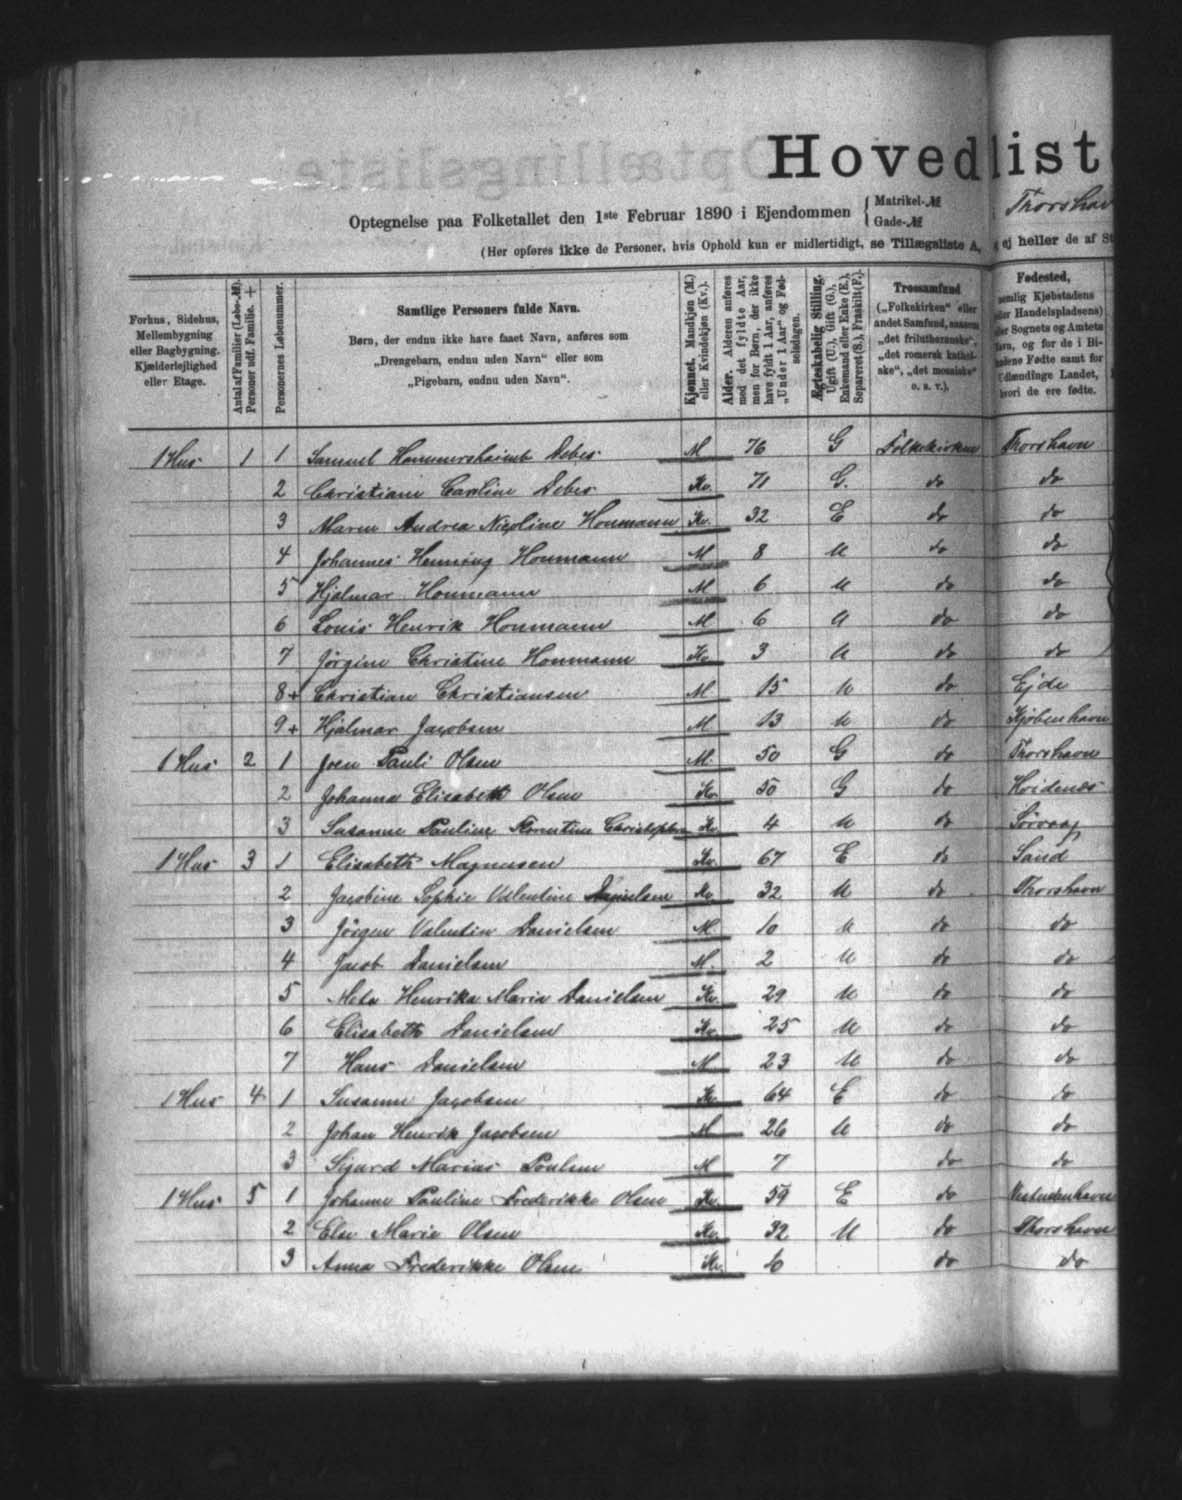 Hovedlist
Optegnelse paa Folketallet den 1ste Februar 1890 i Ejendommen { Matrikel-№ Gade-№ Thorshav
(Her opføres ikke de Personer, hvis Ophold kun er midlertidigt, se Tillægsliste A, ej heller de af St
Forhus, Sidehus, Mellembygning eller Bagbygning. Kjælderlejlighed eller Etage.
Antal af Familier (Løbe-№). Personer udf. Familie. +
Personernes Løbenummer.
Samtlige Personers fulde Navn.
Børn, der endnu ikke have faaet Navn, anføres som
„Drengebarn, endnu uden Navn“ eller som
„Pigebarn, endnu uden Navn“.
Kjønnet. Mandkjøn (M.) eller Kvindekjøn (Kv.).
Alder. Alderen anføres med det fyldte Aar, men for Børn, der ikke have fyldt 1 Aar, anføres „Under 1 Aar“ og Fødselsdagen.
Ægteskabelig Stilling. Ugift (U.), Gift (G.), Enkemand eller Enke (E.), Separeret (S.), Fraskilt (F.).
Trossamfund („Folkekirken“ eller andet Samfund, saasom „det frilutheranske“, „det romersk katholske“, „det mosaiske“ o. s. v.).
Fødested, nemlig Kjøbstadens eller Handelspladsens) eller Sognets og Amtets Navn, og for de i Bilandene Fødte samt for Udlændinge Landet, hvori de ere fødte.
1 Hus 1 1 Samuel Hammershaimb Debes M 76 G Folkekirken Thorshavn
2 Christiane Caroline Debes Kv. 71 G. do do
3 Maren Andrea Nicoline Houmann Kv. 32 E do do
4 Johannes Henning Houmann M 8 U do do
5 Hjalmar Houmann M 6 U do do
6 Louis Henrik Houmann M 6 U do do
7 Jørgine Christine Houmann Kv 3 U do do
8+ Christian Christiansen M 15 U do Ejde
9+ Hjalmar Jacobsen M 13 U do Kjøbenhavn
1 Hus 2 1 Joen Pauli Olsen M. 50 G do Thorshavn
2 Johanna Elisabeth Olsen Kv 50 G do Hvidenæs
3 Susanne Pauline Florentine Kv 4 U do Sørvaag
1 Hus 3 1 Elisabeth Magnusen Kv. 67 E do Sand
2 Jacobine Sophie Valentine Danielsen Kv 32 U do Thorshavn
3 Jørgen Valentin Danielsen M. 10 U do do
4 Jacob Danielsen M. 2 U do do
5 Meta Henrika Maria Danielsen Kv. 29 U do do
6 Elisabeth Danielsen Kv. 25 U do do
7 Hans Danielsen M 23 U do do
1 Hus 4 1 Susanne Jacobsen Kv 64 E do do
2 Johan Henrik Jacobsen M 26 U do do
3 Sigurd Marius Poulsen M 7 do do
1 Hus 5 1 Johanne Pauline Frederikke Olsen Kv. 59 E do
2 Else Marie Olsen Kv. 32 U do Thorshavn
3 Anna Frederikke Olsen Kv. 10 do do